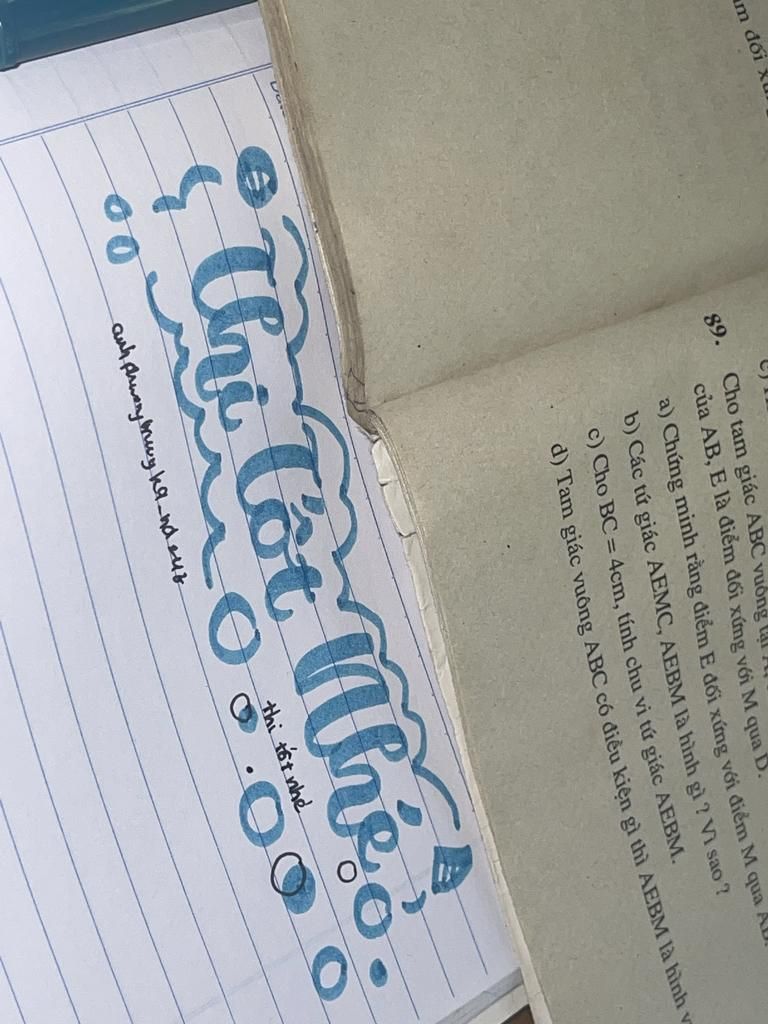 Thi Tốt Nhé
thi tốt nhé
89. Cho tam giác ABC vuông tại
của AB, E là điểm đối xứng với M qua D.
a) Chứng minh rằng điểm E đối xứng với điểm M qua AB.
b) Các tứ giác AEMC, AEBM là hình gì ? Vì sao ?
c) Cho BC = 4cm, tính chu vi tứ giác AEBM.
d) Tam giác vuông ABC có điều kiện gì thì AEBM là hình